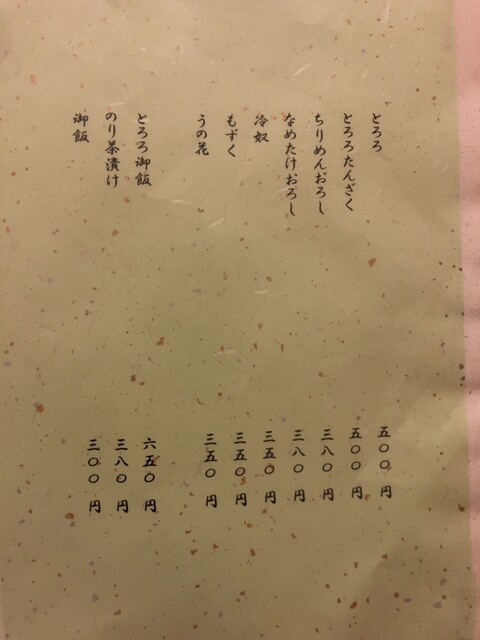 とろろ 五〇〇円
とろろたんざく 五〇〇円
ちりめんおろし 三八〇円
なめたけおろし 三八〇円
冷奴 三五〇円
もずく 三五〇円
うの花 三五〇円
とろろ御飯 六五〇円
のり茶漬け 三八〇円
御飯 三〇〇円